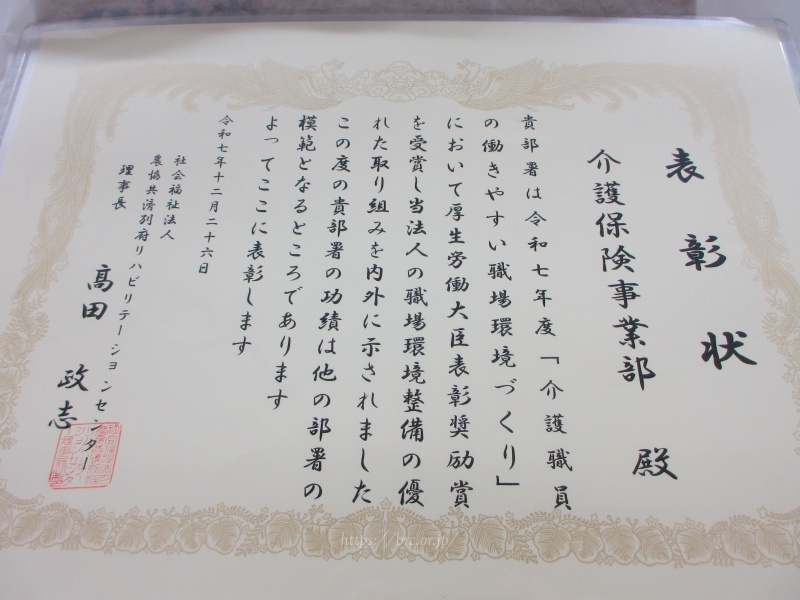 表彰状
介護保険事業部 殿
貴部署は令和七年度「介護職員
の働きやすい職場環境づくり」
において厚生労働大臣表彰奨励賞
を受賞し当法人の職場環境整備の優
れた取り組みを内外に示されました
この度の貴部署の功績は他の部署の
模範となるところであります
よってここに表彰します
令和七年十二月二十六日
社会福祉法人
農協共済別府リハビリテーションセンター
理事長
髙田 政志
https://brc.or.jp/